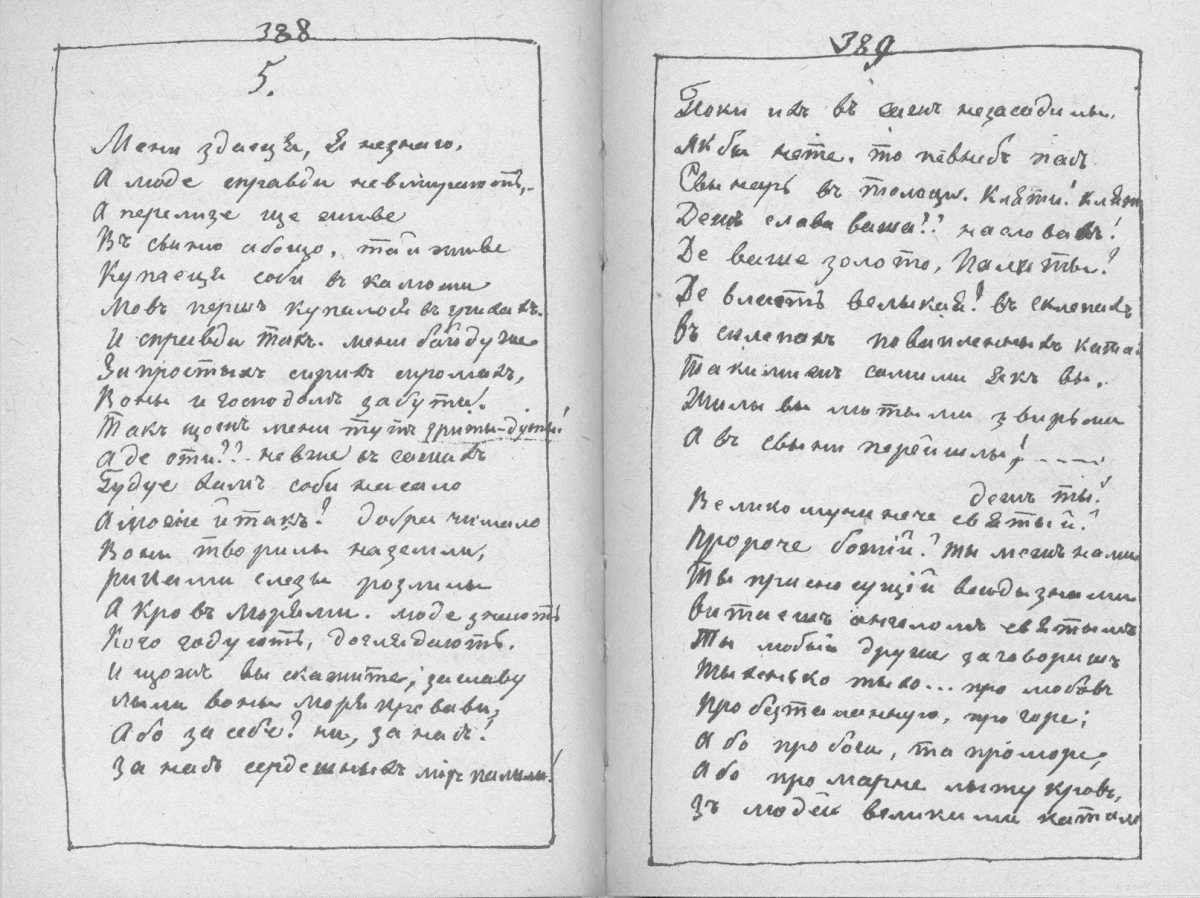 388
5.
Мени здаеця, я незнаю,
А люде справди невмирають,
А перелизе ще живе
Въ свыню абощо, та й живе
Купаеця соби в калюжи
Мовъ першъ купалося въ грихахъ.
И справди такъ. мени байдуже
За простыхъ сирихъ сиромахъ,
Воны и господомъ забути!
Такъ щожъ мени тутъ
А де оти?? невже въ сажахъ
Годує кашъ соби на сало
А може й такъ! добра чимало
Вони творилы на земли,
Риками слезы розлилы
А кровъ морями. люде знають
Кого годують, доглядають.
И щожъ вы скажите, за славу
лили воны моря кровави,
Або за себе? ни, за насъ!
За насъ сердешныхъ мір палили!
389
Поки ихъ въ сажъ незасадилы.
Якбы нете. то певнебъ пасъ
Свынарь въ толоци. Кляти! кляти
Дежъ слава ваша?? на словахъ!
Де ваше золото, палаты?
Де власть велыкая? въ склепахъ
Въ склепахъ повапленныхъ ката
Такимижъ самими якъ вы.
Жилы вы лютыми звирьми
А въ свыни перейшлы!
дежъ ты?
Великомучениче святый?
Пророче божий? ты межъ нами
Ты присносущий всюды з нами
витаешъ ангеломъ святымъ
Ты любый друже заговоришъ
Тыхенько тыхо... про любовъ
Про безталанную, про горе;
Або про бога, та про море,
Або про марне лыту кровъ,
Зъ людей великими катами